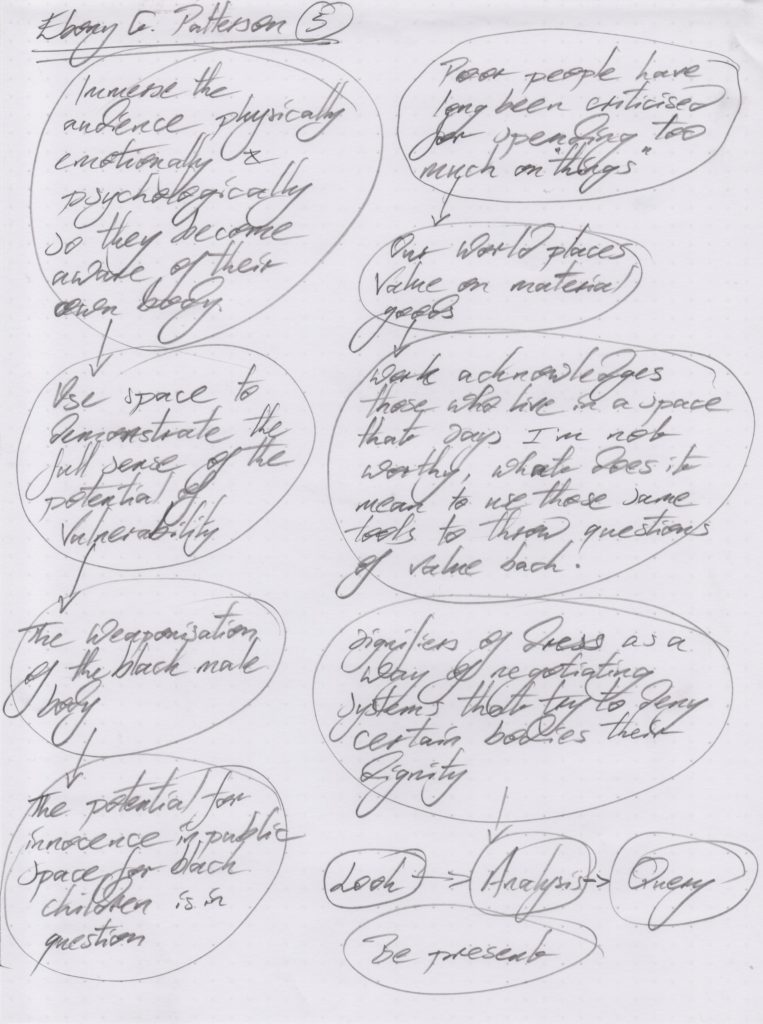 Ebony G. Patterson 3
Immerse the
audience physically
emotionally &
psychologically
so they become
aware of their
own body.
Use space to
demonstrate the
full sense of the
potential of
vulnerability
The weaponisation
of the black male
body
The potential for
innocence in public
space for black
children is in
question
Poor people have
long been criticised
for spending too
much on "things"
Our world places
value on material
goods
Work acknowledges
those who live in a space
that says I'm not
worthy, what does it
mean to use those same
tools to throw questions
of value back.
Signifiers of dress as a
way of negotiating
systems that try to deny
certain bodies their
dignity
Look Analysis Query
Be present